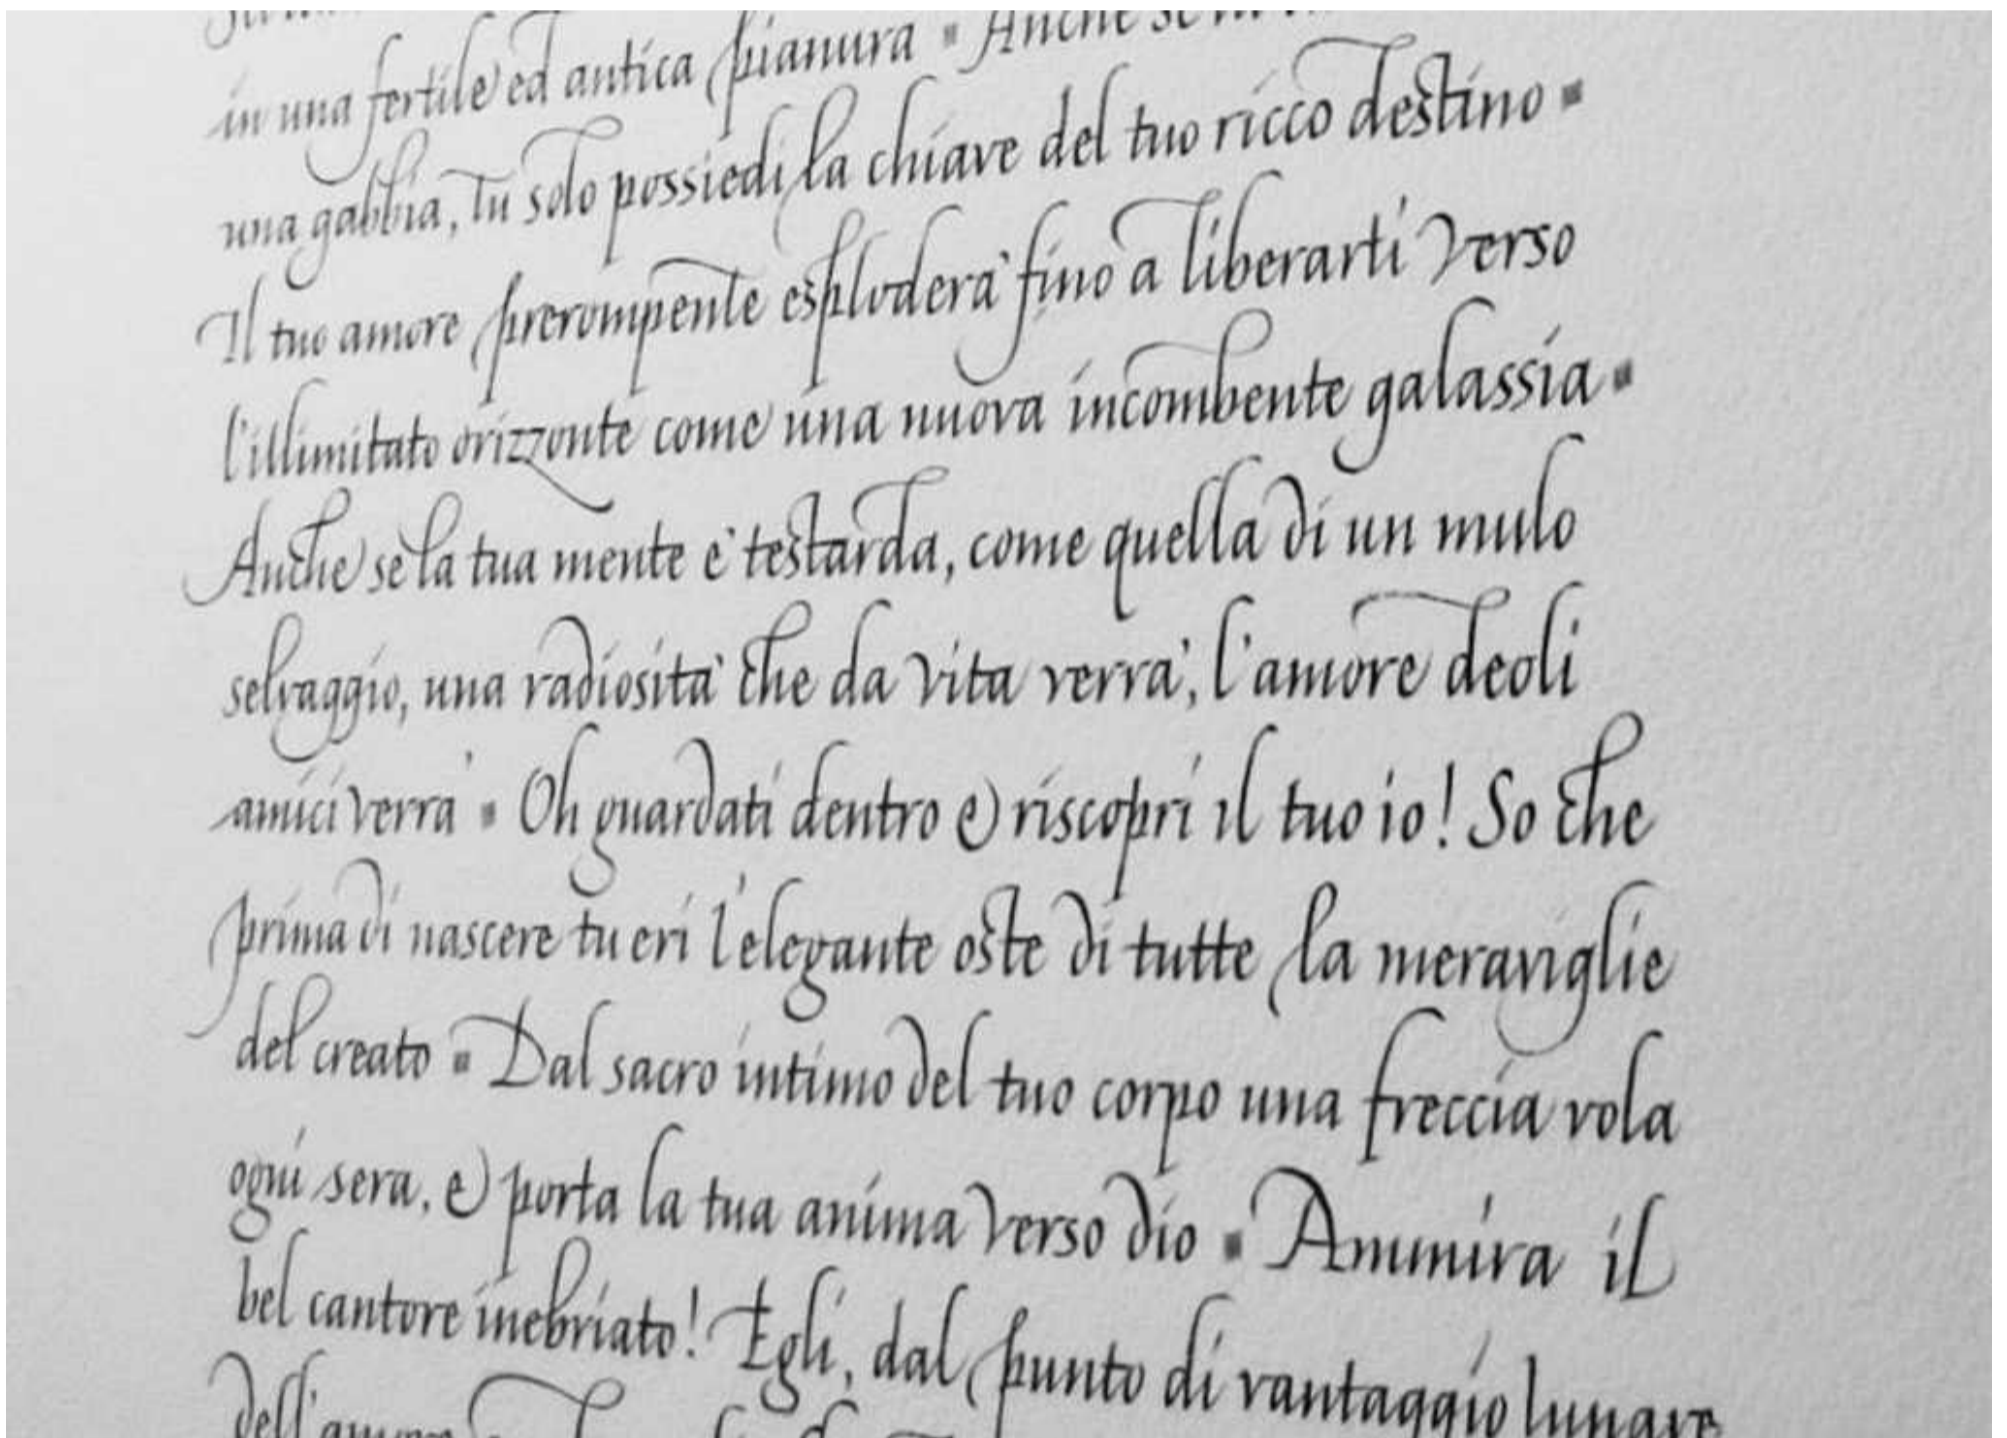 in una fertile ed antica pianura ▪ Anche se
una gabbia, Tu solo possiedi la chiave del tuo ricco destino ▪
Il tuo amore prerompente esploderà fino a liberarti verso
l'illimitato orizzonte come una nuova incombente galassia ▪
Anche se la tua mente è testarda, come quella di un mulo
selvaggio, una radiosità che da vita verrà, l'amore degli
amici verrà ▪ Oh guardati dentro e riscopri il tuo io! So che
prima di nascere tu eri l'elegante oste di tutte la meraviglie
del creato ▪ Dal sacro intimo del tuo corpo una freccia vola
ogni sera, e porta la tua anima verso dio ▪ Ammira il
bel cantore inebriato! Egli, dal punto di vantaggio lunare